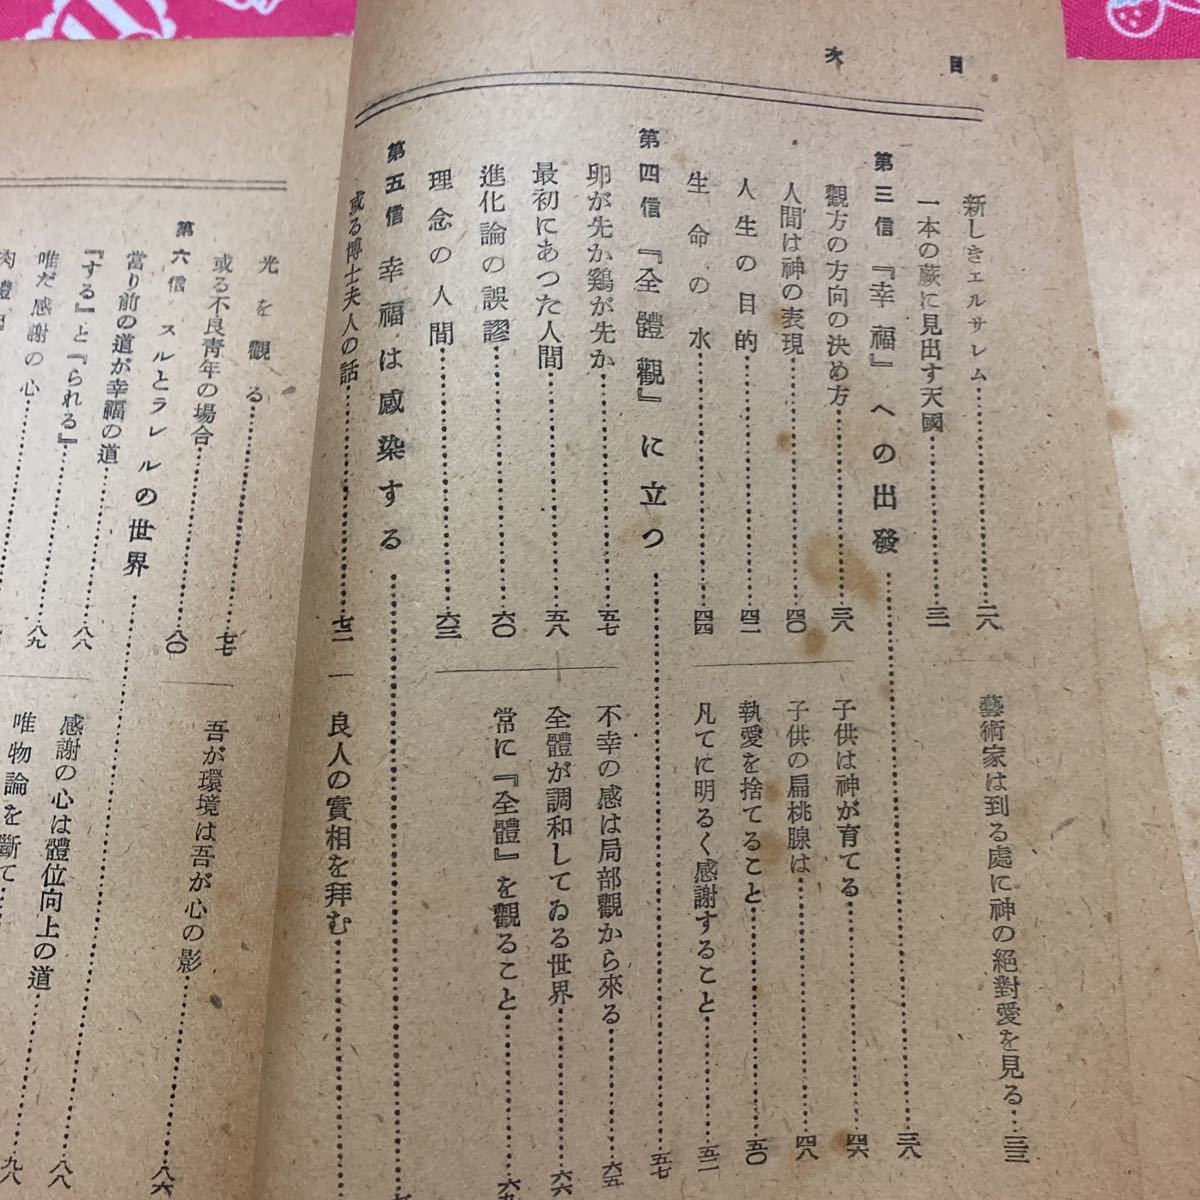 目次
新しきエルサレム……二八
一本の蕨に見出す天國……三一
藝術家は到る處に神の絕對愛を見る……三三
第三信 『幸福』への出發……三八
觀方の方向の決め方……三八
人間は神の表現……四〇
人生の目的……四二
生命の水……四四
子供は神が育てる……四六
子供の扁桃腺は……四八
執愛を捨てること……五〇
凡てに明るく感謝すること……五二
第四信 『全體觀』に立つ……五七
卵が先か鷄が先か……五七
最初にあつた人間……五八
進化論の誤謬……六〇
理念の人間……六三
不幸の感は局部觀から來る……六五
全體が調和してゐる世界……六六
常に『全體』を觀ること……六九
第五信 幸福は感染する……
或る博士夫人の話……七二
良人の實相を拜む……
光を觀る……七七
或る不良靑年の場合……八〇
吾が環境は吾が心の影……八六
第六信 スルとラレルの世界……
當り前の道が幸福の道……八八
『する』と『られる』……八八
唯だ感謝の心……八九
感謝の心は體位向上の道……八八
唯物論を斷て……九八